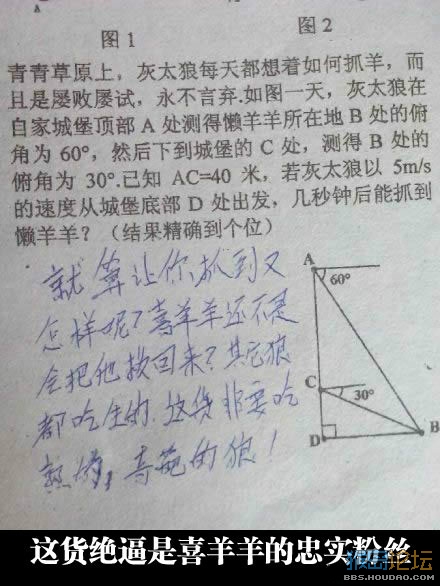 A
图1 图2
青青草原上，灰太狼每天都想着如何抓羊，而
且是屡败屡试，永不言弃.如图一天，灰太狼在
自家城堡顶部 A 处测得懒羊羊所在地 B 处的俯
角为 60°，然后下到城堡的 C 处，测得 B 处的
俯角为 30°.已知 AC=40 米，若灰太狼以 5m/s
的速度从城堡底部 D 处出发，几秒钟后能抓到
懒羊羊？（结果精确到个位）
就算让你抓到又
怎样呢？喜羊羊还不是
会把他救回来？其它狼
都吃生的，这货非要吃
熟的，奇葩的狼！
A
60°
C
30°
D
B
这货绝逼是喜羊羊的忠实粉丝
论坛
BBS.HOUDAO.COM